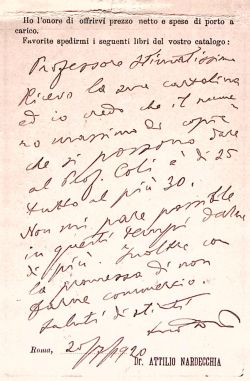 Ho l'onore di offrirvi prezzo netto e spese di porto a
carico.
Favorite spedirmi i seguenti libri del vostro catalogo:
Professore stimatissimo
Ricevo la sua cartolina
ed io credo che il nume
ro massimo di copie
che si possono dare
al Prof. Coli è di 25
tutto al più 30.
Non mi pare possibile
in questi tempi darne
di più. Inoltre con
la promessa di non
farne commercio.
Saluti distinti
Roma, 20/7/1920
Dr. ATTILIO NARDECCHIA